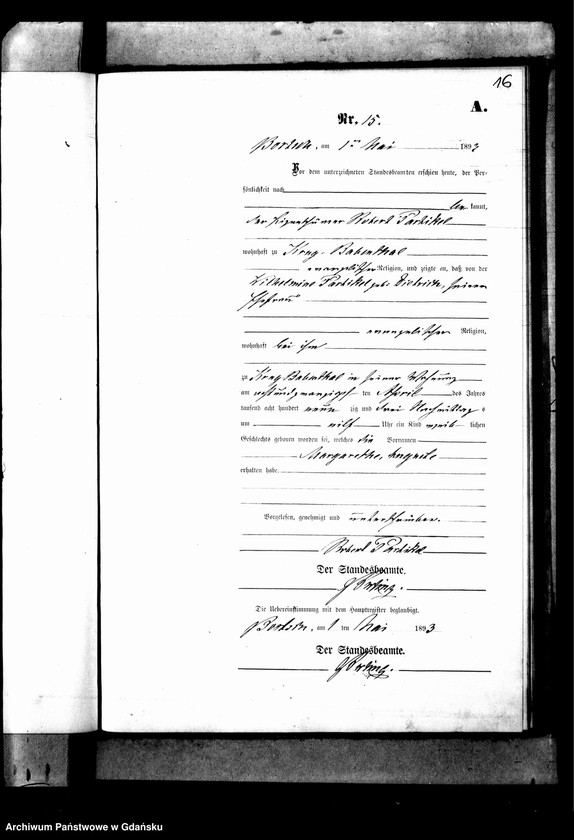 16
A.
Nr. 15.
am 1ten Mai 1893
Vor dem unterzeichneten Standesbeamten erschien heute, der Per-
sönlichkeit nach
kannt,
der Eigenthümer Robert Partikel
wohnhaft zu Krug-Babenthal
evangelischer Religion, und zeigte an, daß von der
Wilhelmine Partikel geb. Dietrich, seiner
Ehefrau
evangelischer Religion,
wohnhaft bei ihm
zu Krug Babenthal in seiner Wohnung
am achtundzwanzigsten April des Jahres
tausend acht hundert neunzig und drei Nachmittags
um elf Uhr ein Kind weiblichen
Geschlechts geboren worden sei, welches die Vornamen
Margarethe, Auguste
erhalten habe.
Vorgelesen, genehmigt und unterschrieben.
Robert Partikel
Der Standesbeamte.
Die Uebereinstimmung mit dem Hauptregister beglaubigt.
am 1 ten Mai 1893
Der Standesbeamte.
Archiwum Państwowe w Gdańsku